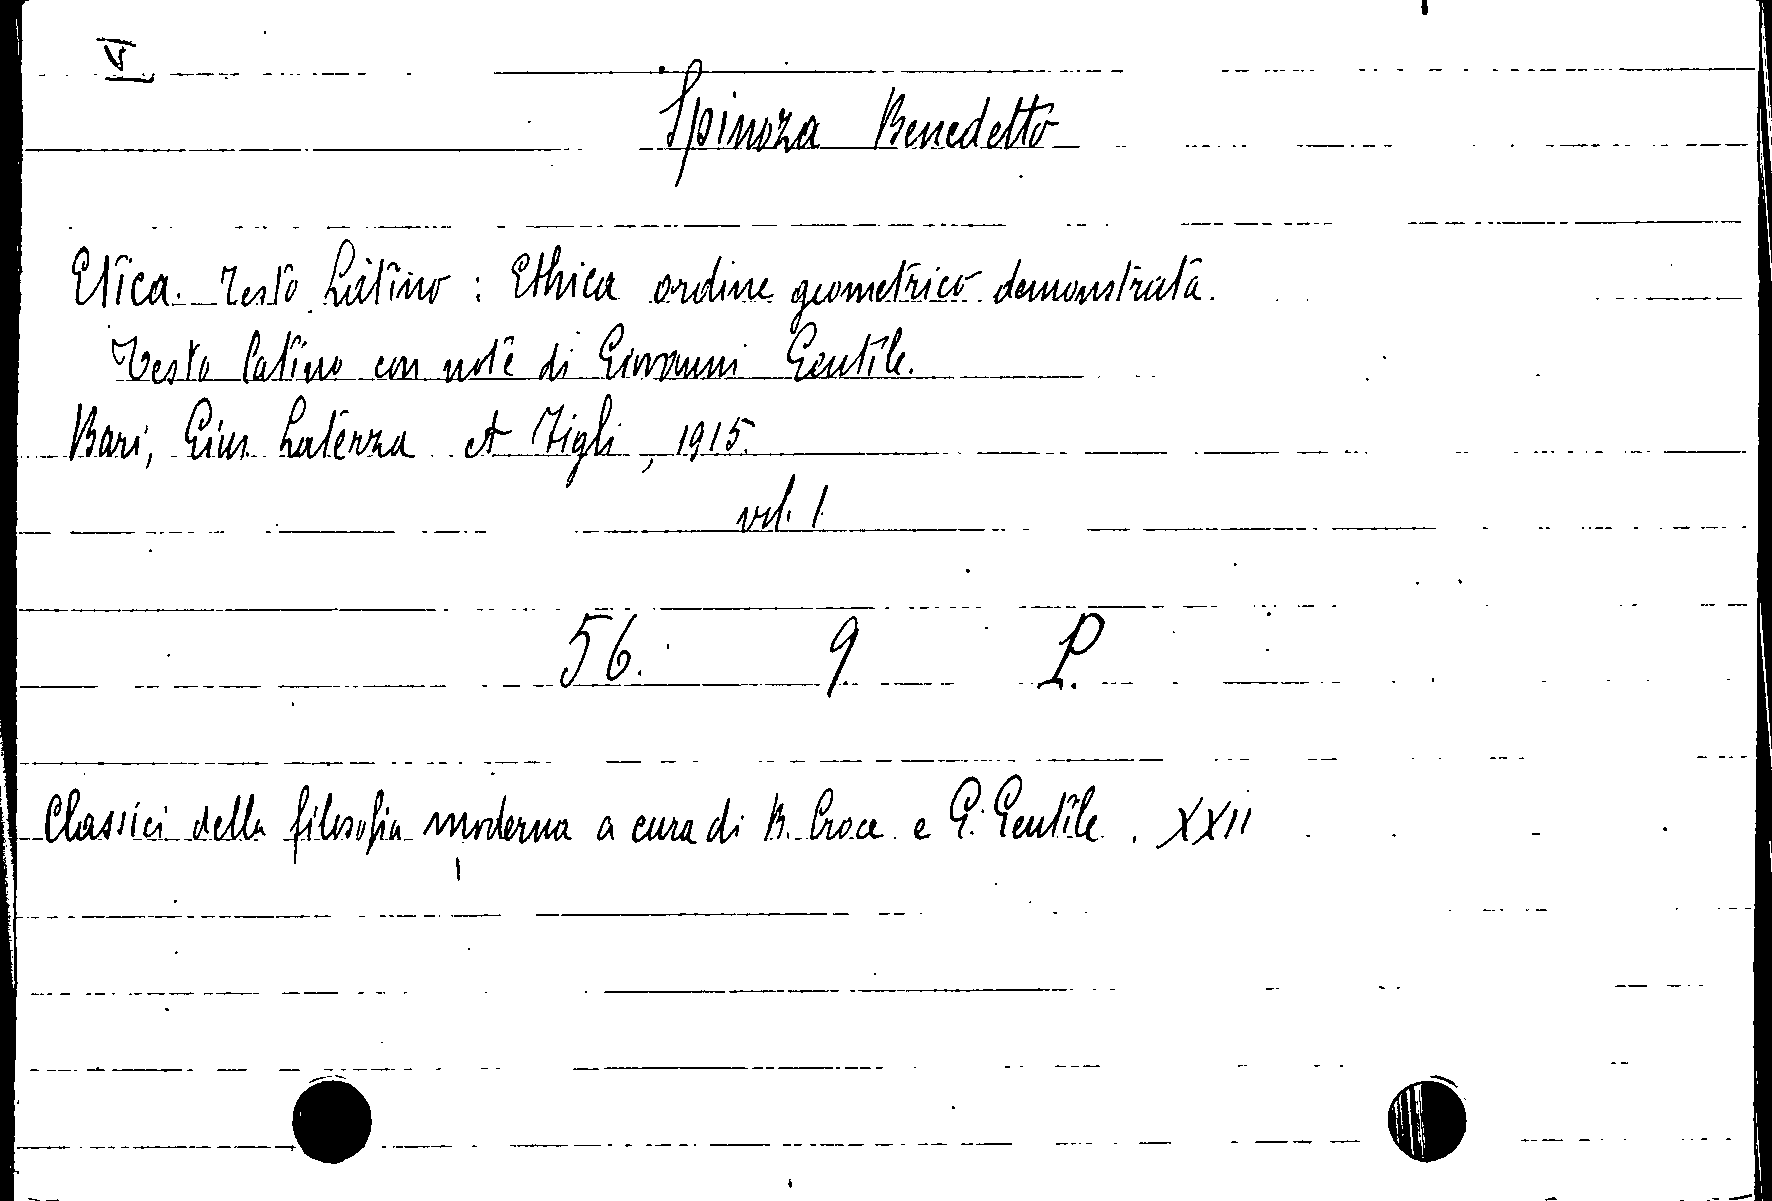 Spinoza Benedetto
Etica. Testo Latino : Ethica ordine geometrico demonstrata.
Testo latino con note di Giovanni Gentile.
Bari, Gius. Laterza et Figli, 1915.
vol. 1
56. 9 P.
Classici della filosofia moderna a cura di B. Croce e G. Gentile. XXII